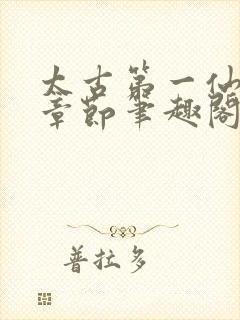 太古第一仙
章節筆趣閣
普拉多